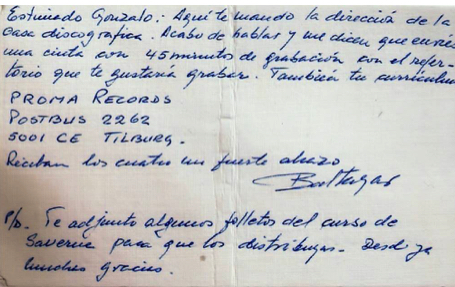 Estimado Gonzalo: Aquí te mando la dirección de la
Casa discografica. Acabo de hablar y me dicen que envíes
una cinta con 45 minutos de grabación con el reper-
torio que te gustaria grabar. También tu currículum
PROMA RECORDS
POSTBUS 2262
5001 CE TILBURG.
Reciban los cuatro un fuerte abrazo
P/D. Te adjunto algunos folletos del curso de
Saverne para que los distribuyas. Desd ya
muchas gracias.